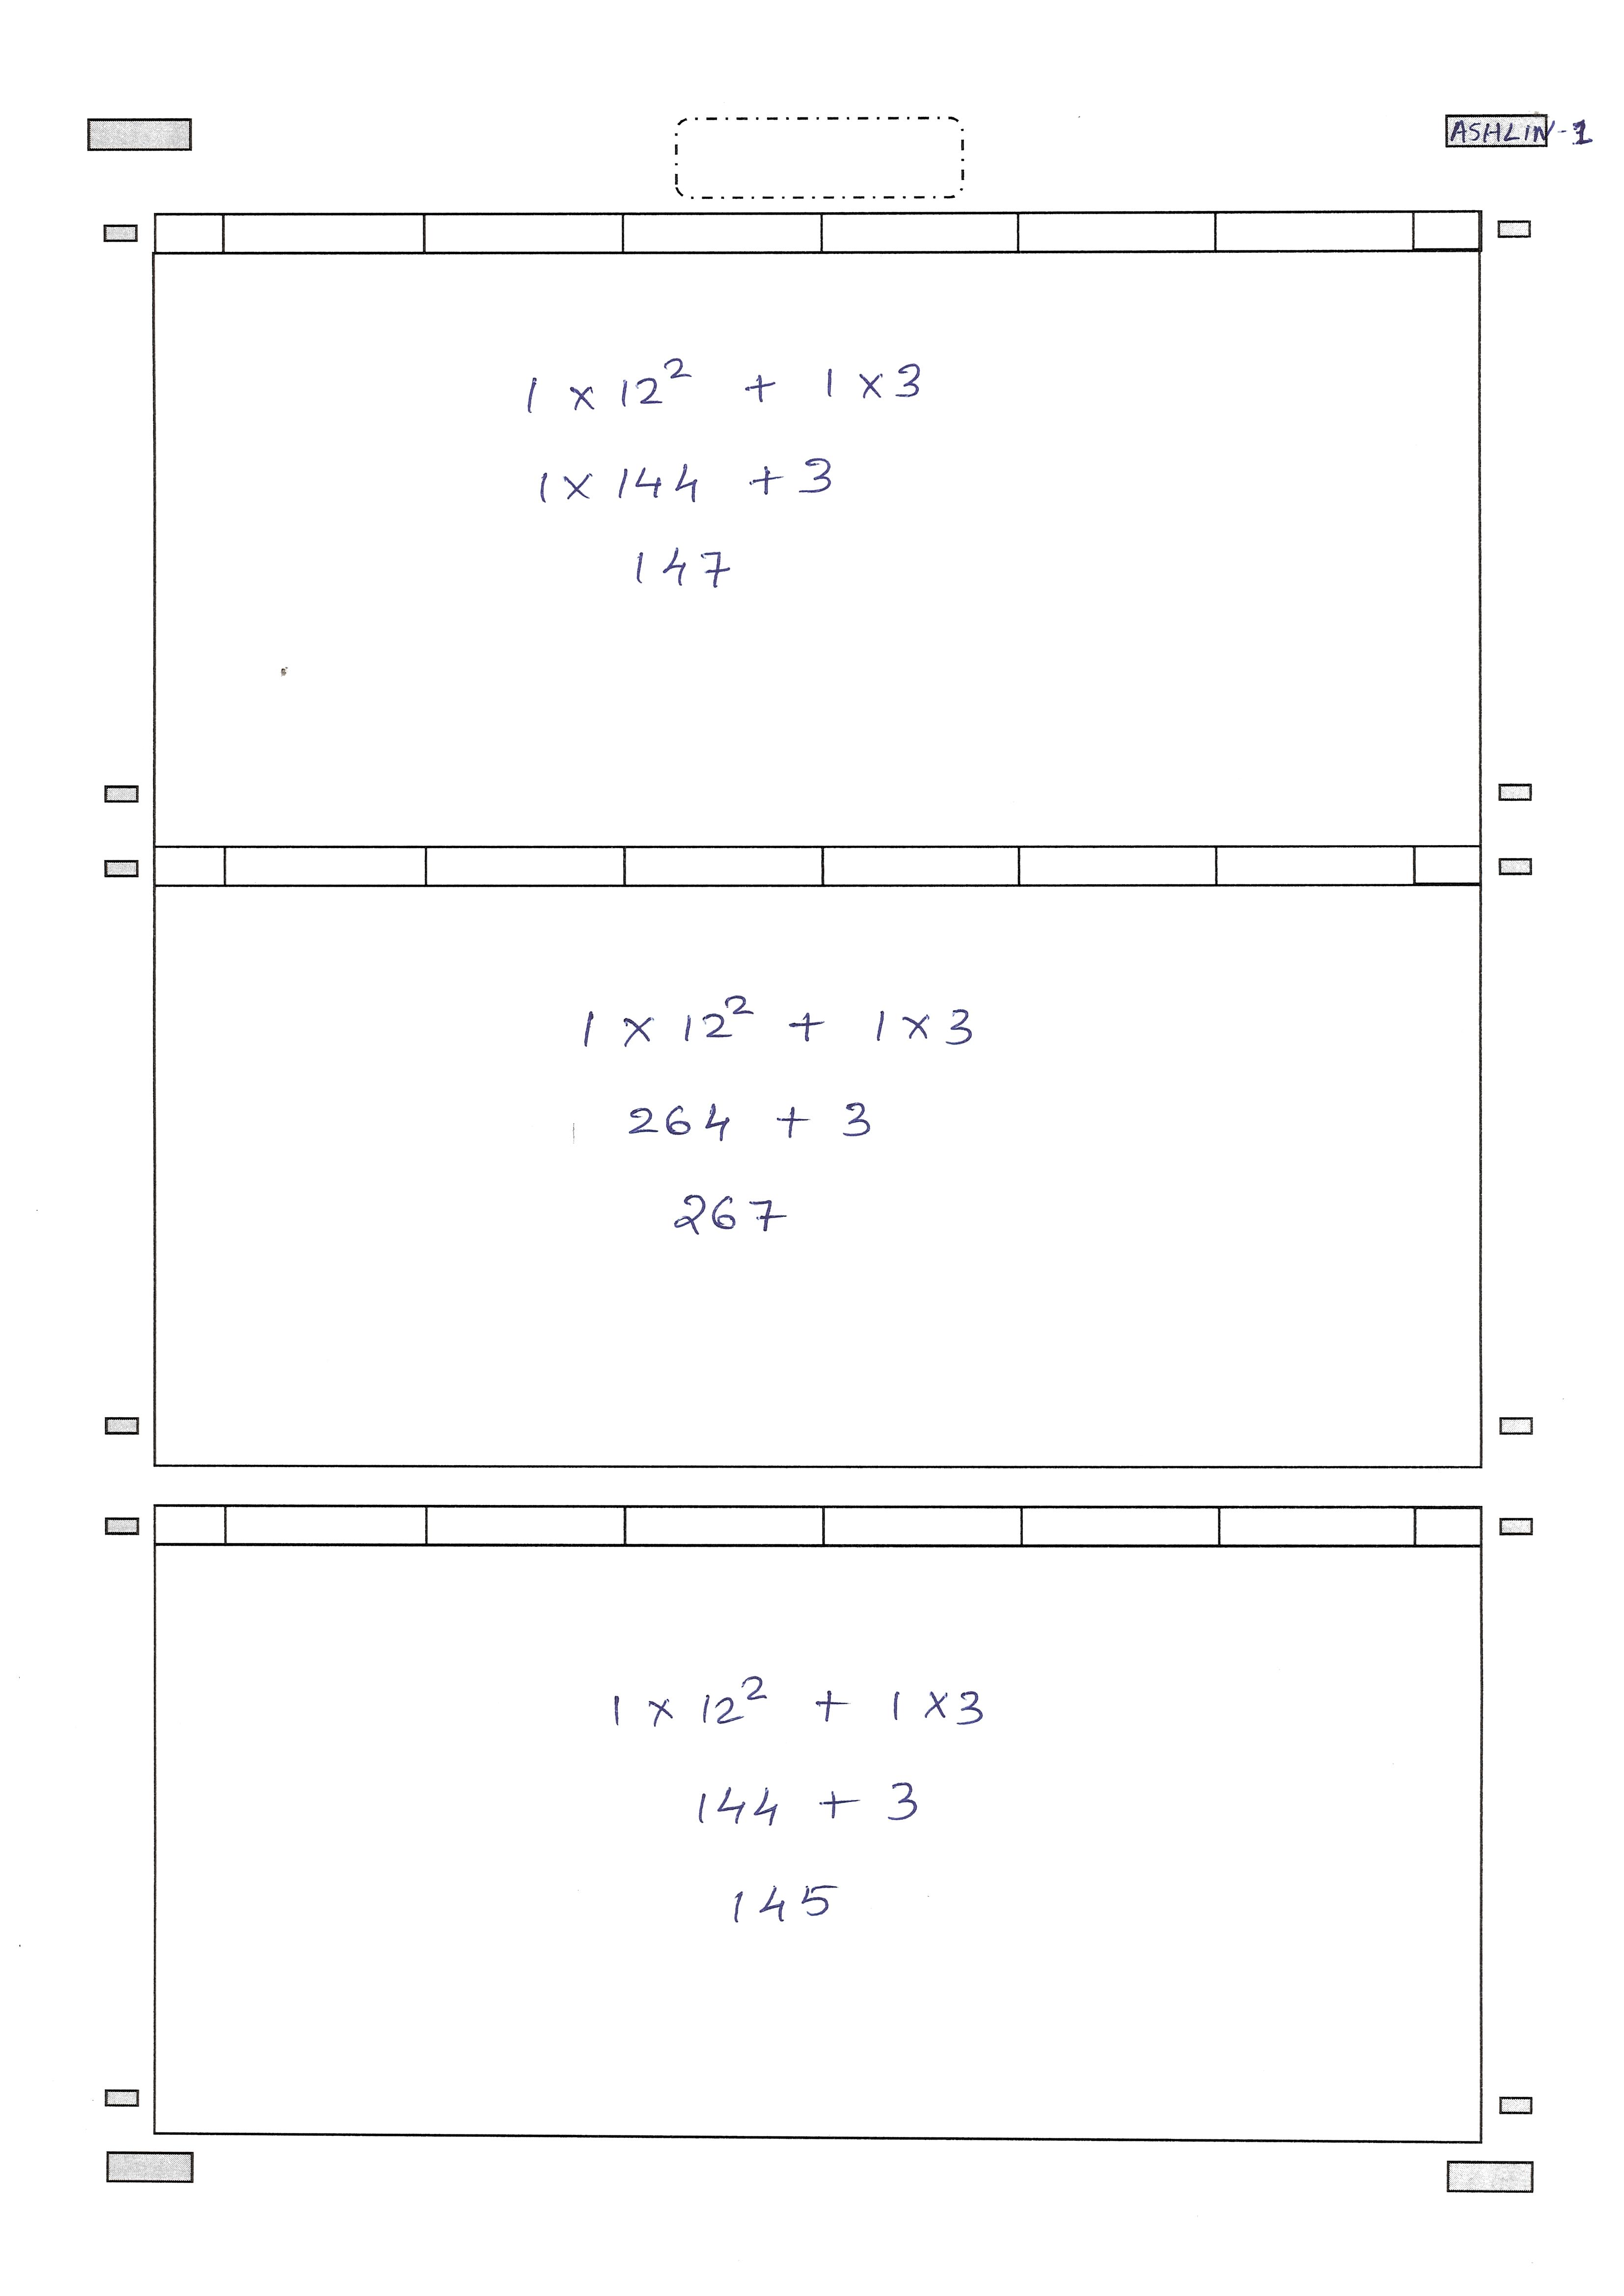 ASHLIN-1
1 × 12² + 1 × 3
1 × 144 + 3
147
1 × 12² + 1 × 3
264 + 3
267
1 × 12² + 1 × 3
144 + 3
145